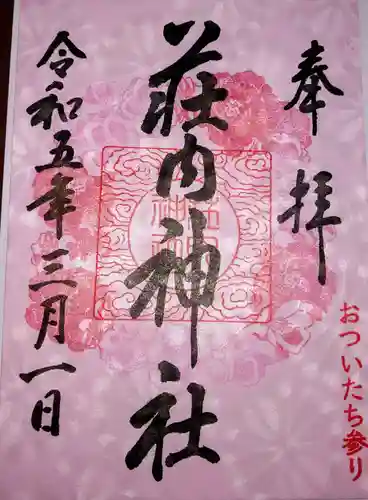 奉拝
荘内神社
令和五年三月一日
おついたち参り